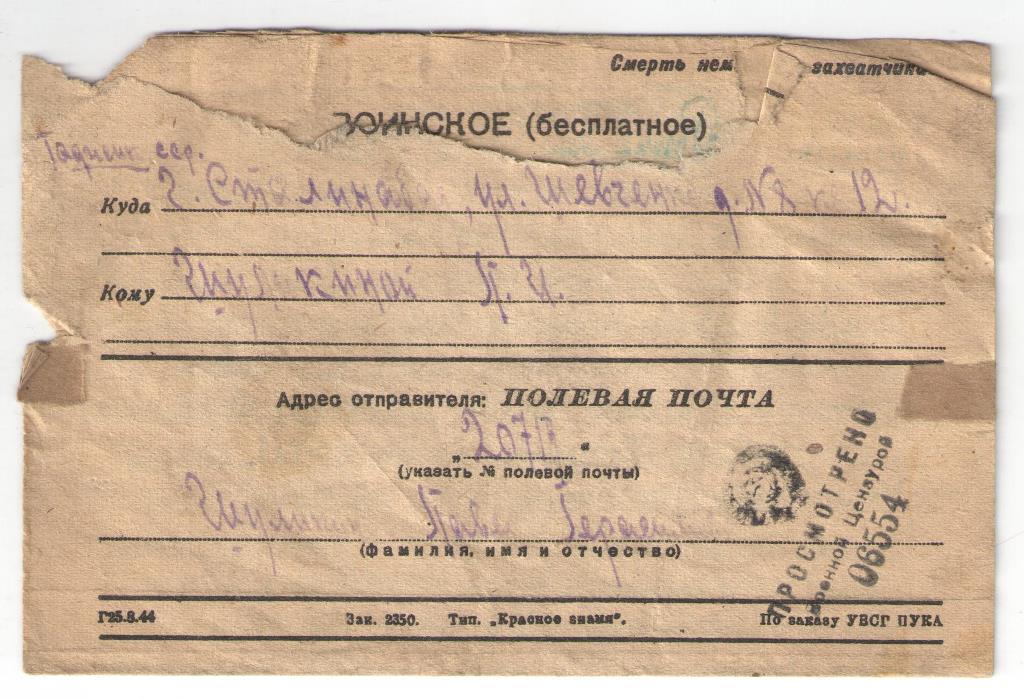 Смерть нем захватчика
ВОИНСКОЕ (бесплатное)
Таджик сср.
Куда г. Сталинабад, ул. Шевченко д. N 8 к 12.
Кому П. И.
Адрес отправителя: ПОЛЕВАЯ ПОЧТА
„ "
(указать № полевой почты)
Павел
(фамилия, имя и отчество)
ПРОСМОТРЕНО
Военной Цензурой
06554
Г25.8.44 Зак. 2350. Тип. „Красное знамя“. По заказу УВСГ ПУКА